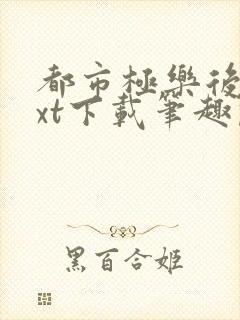 都市極樂後
xt下載筆趣
黑百合姬